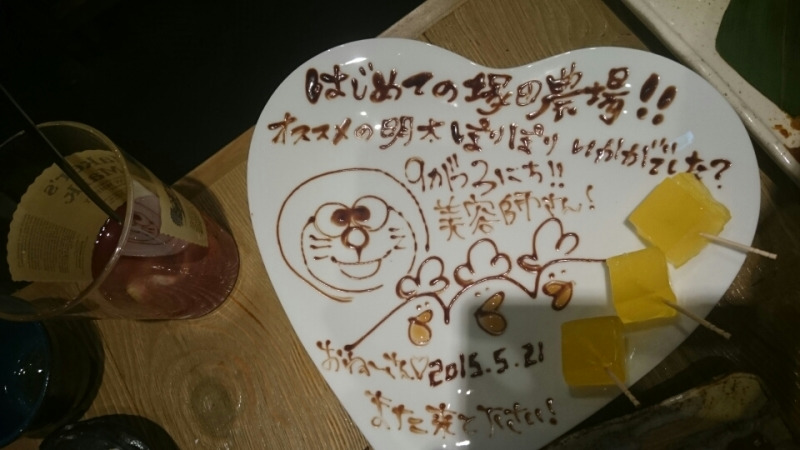 はじめての塚田農場!!
オススメの明太ぽりぽりいかがでした?
9がつ3にち!!
美容師さん!
2015.5.21
また来て下さい!